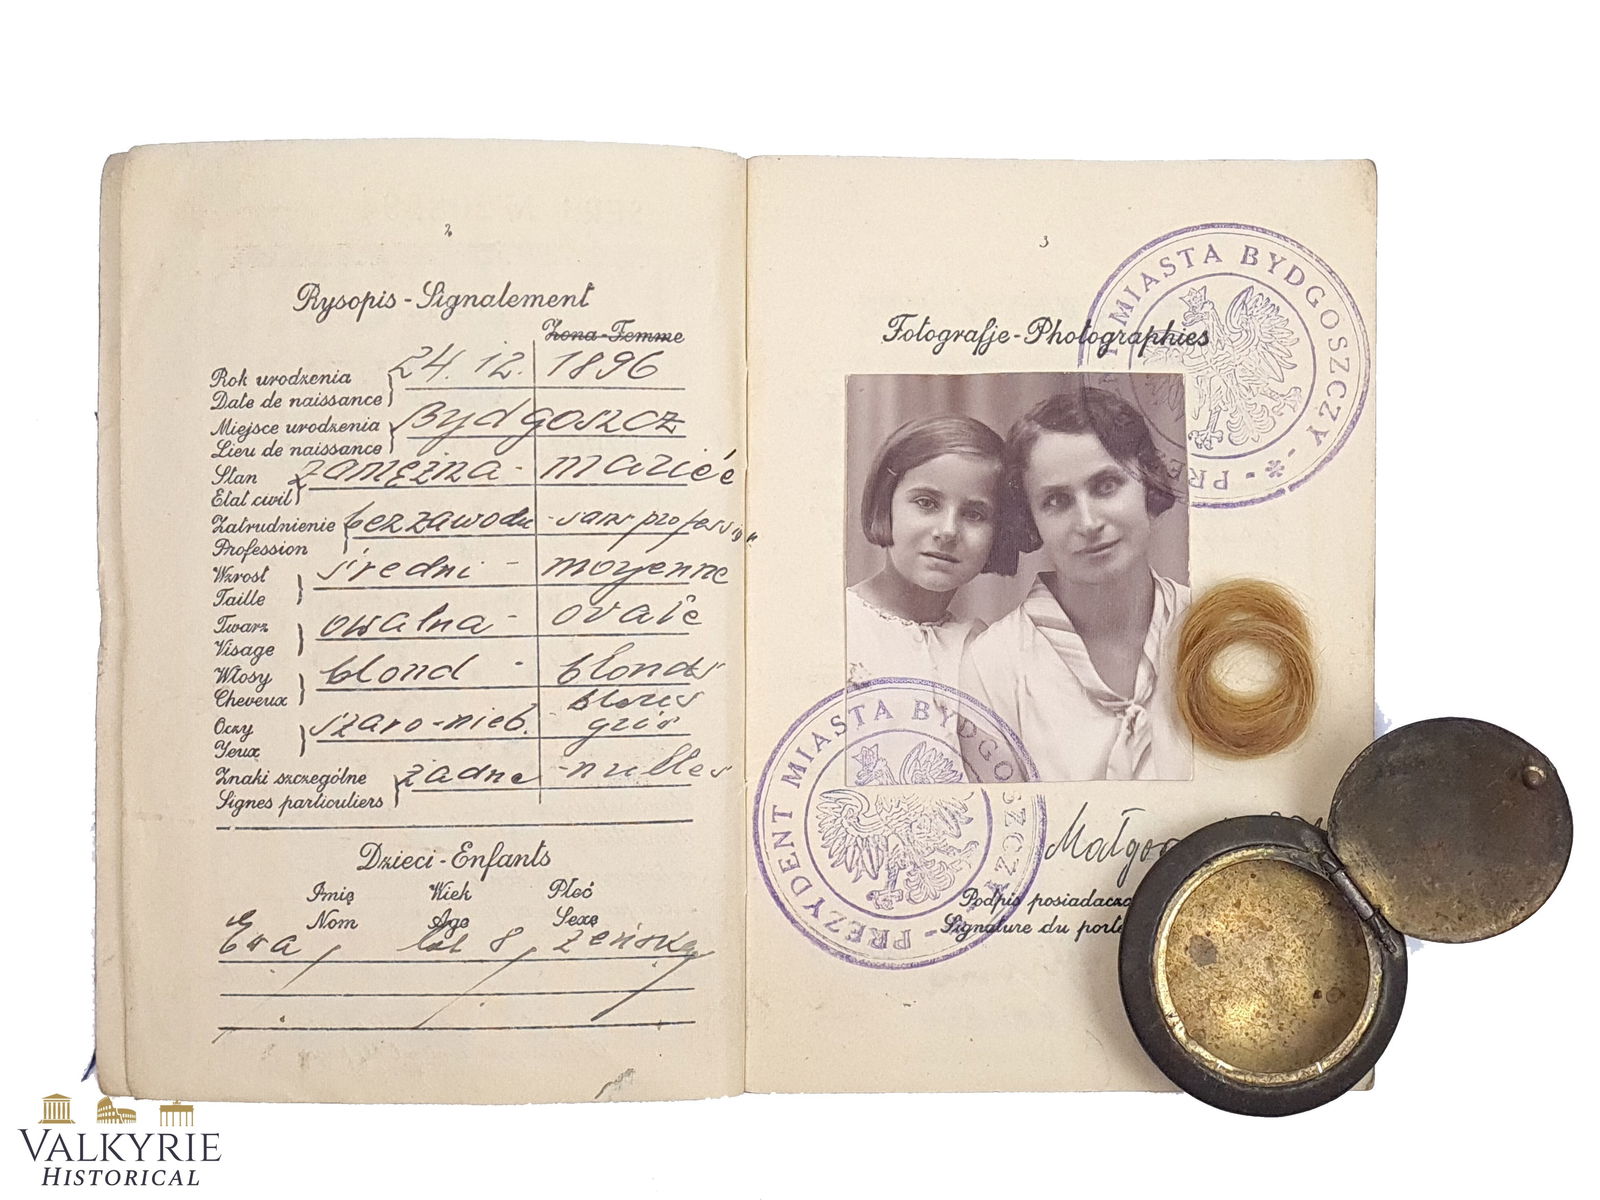 2
Rysopis - Signalement
Żona - Femme
Rok urodzenia
Date de naissance
24. 12. 1896
Miejsce urodzenia
Lieu de naissance
Bydgoszcz
Stan
Etat civil
zamężna - mariée
Zatrudnienie
Profession
bez zawodu - sans profession
Wzrost
Taille
średni - moyenne
Twarz
Visage
owalna - ovale
Włosy
Cheveux
blond - blonds
Oczy
Yeux
szaro-nieb. bleus gris
Znaki szczególne
Signes particuliers
żadne - nulles
Dzieci - Enfants
Imię Wiek Płeć
Nom Age Sexe
Ewa, lat 8, żeńska
3
Fotografje - Photographies
MIASTA BYDGOSZCZY
PREZYDENT MIASTA BYDGOSZCZY
Podpis posiadacza
Signature du
VALKYRIE
HISTORICAL